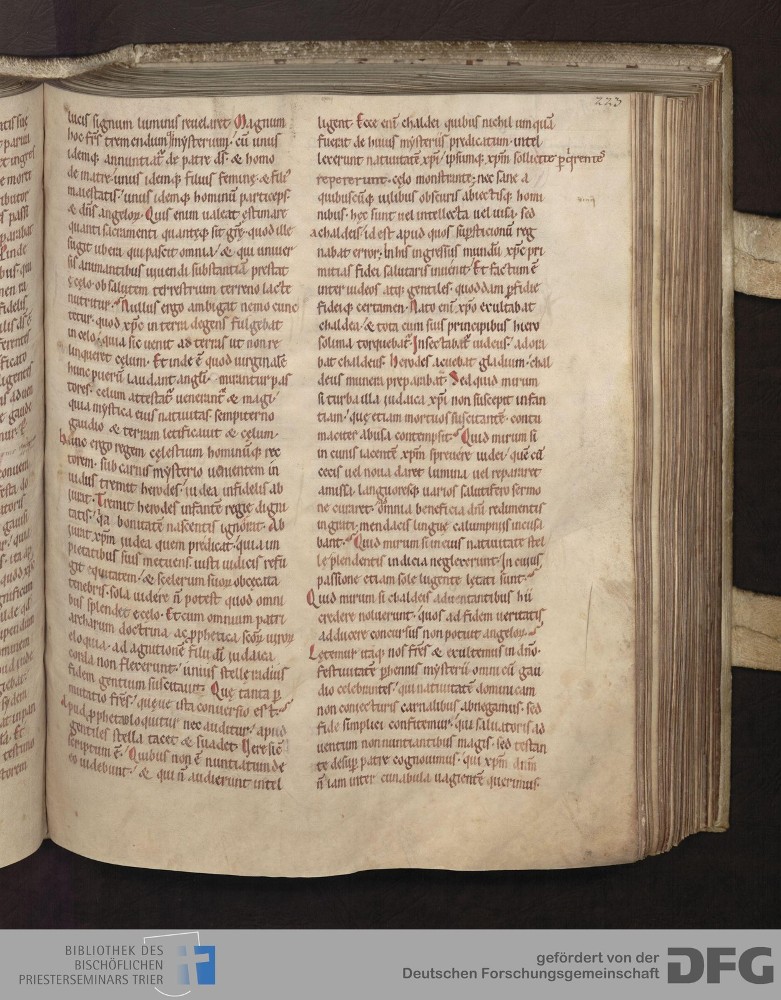 223
lucis signum luminis reuelaret. Magnum
hoc fr̄s tremendum mysterium. cū unus
idemq; annuntiat̄ de patre d̄s. & homo
de matre. unus idemq; filius feminę. & fili᷒
maiestatis. unus idemq; hominū particeps.
& dn̄s angeloꝝ. Quis enim ualeat estimare
quanti sacramenti quanteq; sit gr̄ę. quod ille
sugit ubera qui pascit omnia. & qui uniuer
sis animantibus uiuendi substantiā prestat
e cęlo. ob salutem terrestrium terreno lacte
nutritur. Nullus ergo ambigat nemo cunc
tetur. quod xp̄c in terra degens fulgebat
in celo. quia sic uenit ad terras ut non re
linqueret cęlum. Et inde ē quod uirginalē
hunc puerū laudant angl̄i. mirantur pas
tores. celum attestat̄ uenerant̄ & magi.
quia mystica eius natiuitas sempiterno
gaudio & terram letificauit & cęlum.
hunc ergo regem cęlestium hominūq; rec
torem. sub carnis mysterio uenientem in
iudeis tremit herodes. iudea infidelis ab
iurat. Tremit herodes infantē regie digni
tatis. q̄a bonitatē nascentis ignorat. Ab
iurat xp̄m iudea quem predicat. quia im
pietatibus suis metuens. iusti iudicis refu
git equitatem. & scelerum suoꝝ obcęcata
tenebris. sola uidere n̄ potest quod omni
bus splendet e cęlo. Et cum omnium patri
archarum doctrina ac ꝓphetica scōꝝ uiroꝝ
eloquia. ad agnitionē filii dī iudaica
corda non flexerunt. unius stelle radius
fidem gentium suscitauit. Quę tanta ꝑ
mutatio fr̄s. queue ista conuersio est.
Apud ꝓphetas loquitur nec auditur. apud
gentiles stella tacet & suadet. Vere sic̄
scriptum ē. Quibus non ē nuntiatum de
eo uidebunt. & qui n̄ audierunt intel
ligent. Ecce enī chaldei quibus nichil umquā
fuerat de huius mysteriis predicatum. intel
lexerunt natiuitatē xp̄i. ipsumq; xp̄m sollicite ꝑq̇rentes
repererunt. cęlo monstrante. nec sane a
quibuscūq; uilibus obscuris abiectisq; homi
nibus. hęc sunt uel intellecta uel uisa. sed
a chaldeis. id est apud quos suꝑsticionū reg
nabat error. In his ingressus mundū xp̄c pri
mitias fidei salutaris inuenit. Et factum ē
inter iudeos atq; gentiles. quoddam ꝑfidie
fideiq; certamen. Nato enī xp̄o exultabat
chaldea. & tota cum suis principibus hiero
solima torquebat̄. Insectabat̄ iudeus. adora
bat chaldeus. herodes acuebat gladium. chal
deus munera preparabat. Sed quid mirum
si turba illa iudaica xp̄i non suscepit infan
tiam. que etiam mortuos suscitantē. contu
maciter abusa contempsit. Quid mirum si
in cunis iacentē xp̄m spreuere iudei. quē cā
cecis uel noua daret lumina. uel repararet
amissa. languoresq; uarios salutifero sermo
ne curaret. omnia beneficia dn̄i redimentis
ingrati. mendacis lingue calumpniis incusa
bant. Quid mirum si in eius natiuitate stel
le splendentis indicia neglexerunt. In cuius
passione etiam sole lugente lętati sunt.
Quid mirum si chaldeis aduentantibus hii
credere noluerunt. quos ad fidem ueritatis
adducere concursus non potuit angeloꝝ.
Letemur itaq; nos fr̄s & exultemus in dn̄o.
festiuitatē ꝑhennis mysterii omni cū gau
dio celebrantes. qui natiuitatē dominicam
non coniecturis carnalibus abnegamus. sed
fide simplici confitemur. qui saluatoris ad
uentum non nuntiantibus magis. sed testan
te desup patre cognouimus. qui xp̄m dn̄m
n̄ iam inter cunabula uagientē querimus.
BIBLIOTHEK DES
BISCHÖFLICHEN
PRIESTERSEMINARS TRIER
gefördert von der
Deutschen Forschungsgemeinschaft
DFG